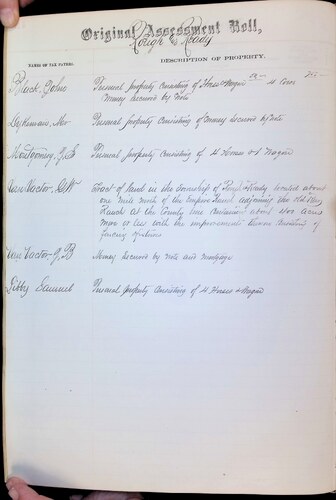 Original Assessment Roll,
Rough & Ready
NAMES OF TAX PAYERS.
DESCRIPTION OF PROPERTY.
Black, John
Personal property consisting of Horse & Wagon 4 Cows
Money secured by Note
Personal property consisting of money secured by note
Montgomery, J E
Personal property consisting of 4 Horses & 1 Wagon
Van Vactor, D W
Tract of land in the Township of Rough & Ready located about
one mile north of the Empire Ranch adjoining the Old
Ranch at the County line containing about 400 acres
more or less with the improvements thereon consisting of
fencing
Van Vactor J B
Money secured by note and mortgage
Libby Samuel
Personal property consisting of 4 Horses & Wagon